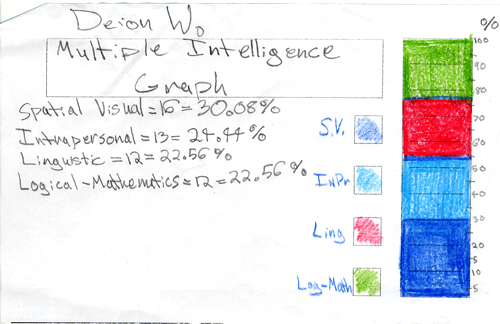 Deion W.
Multiple Intelligence
Graph
Spatial Visual = 16 = 30.08%
Intrapersonal = 13 = 24.44%
Linguistic = 12 = 22.56%
Logical-Mathematics = 12 = 22.56%
S.V.
InPr
Ling
Log-Math
%
100
90
80
70
60
50
40
30
20
10
5